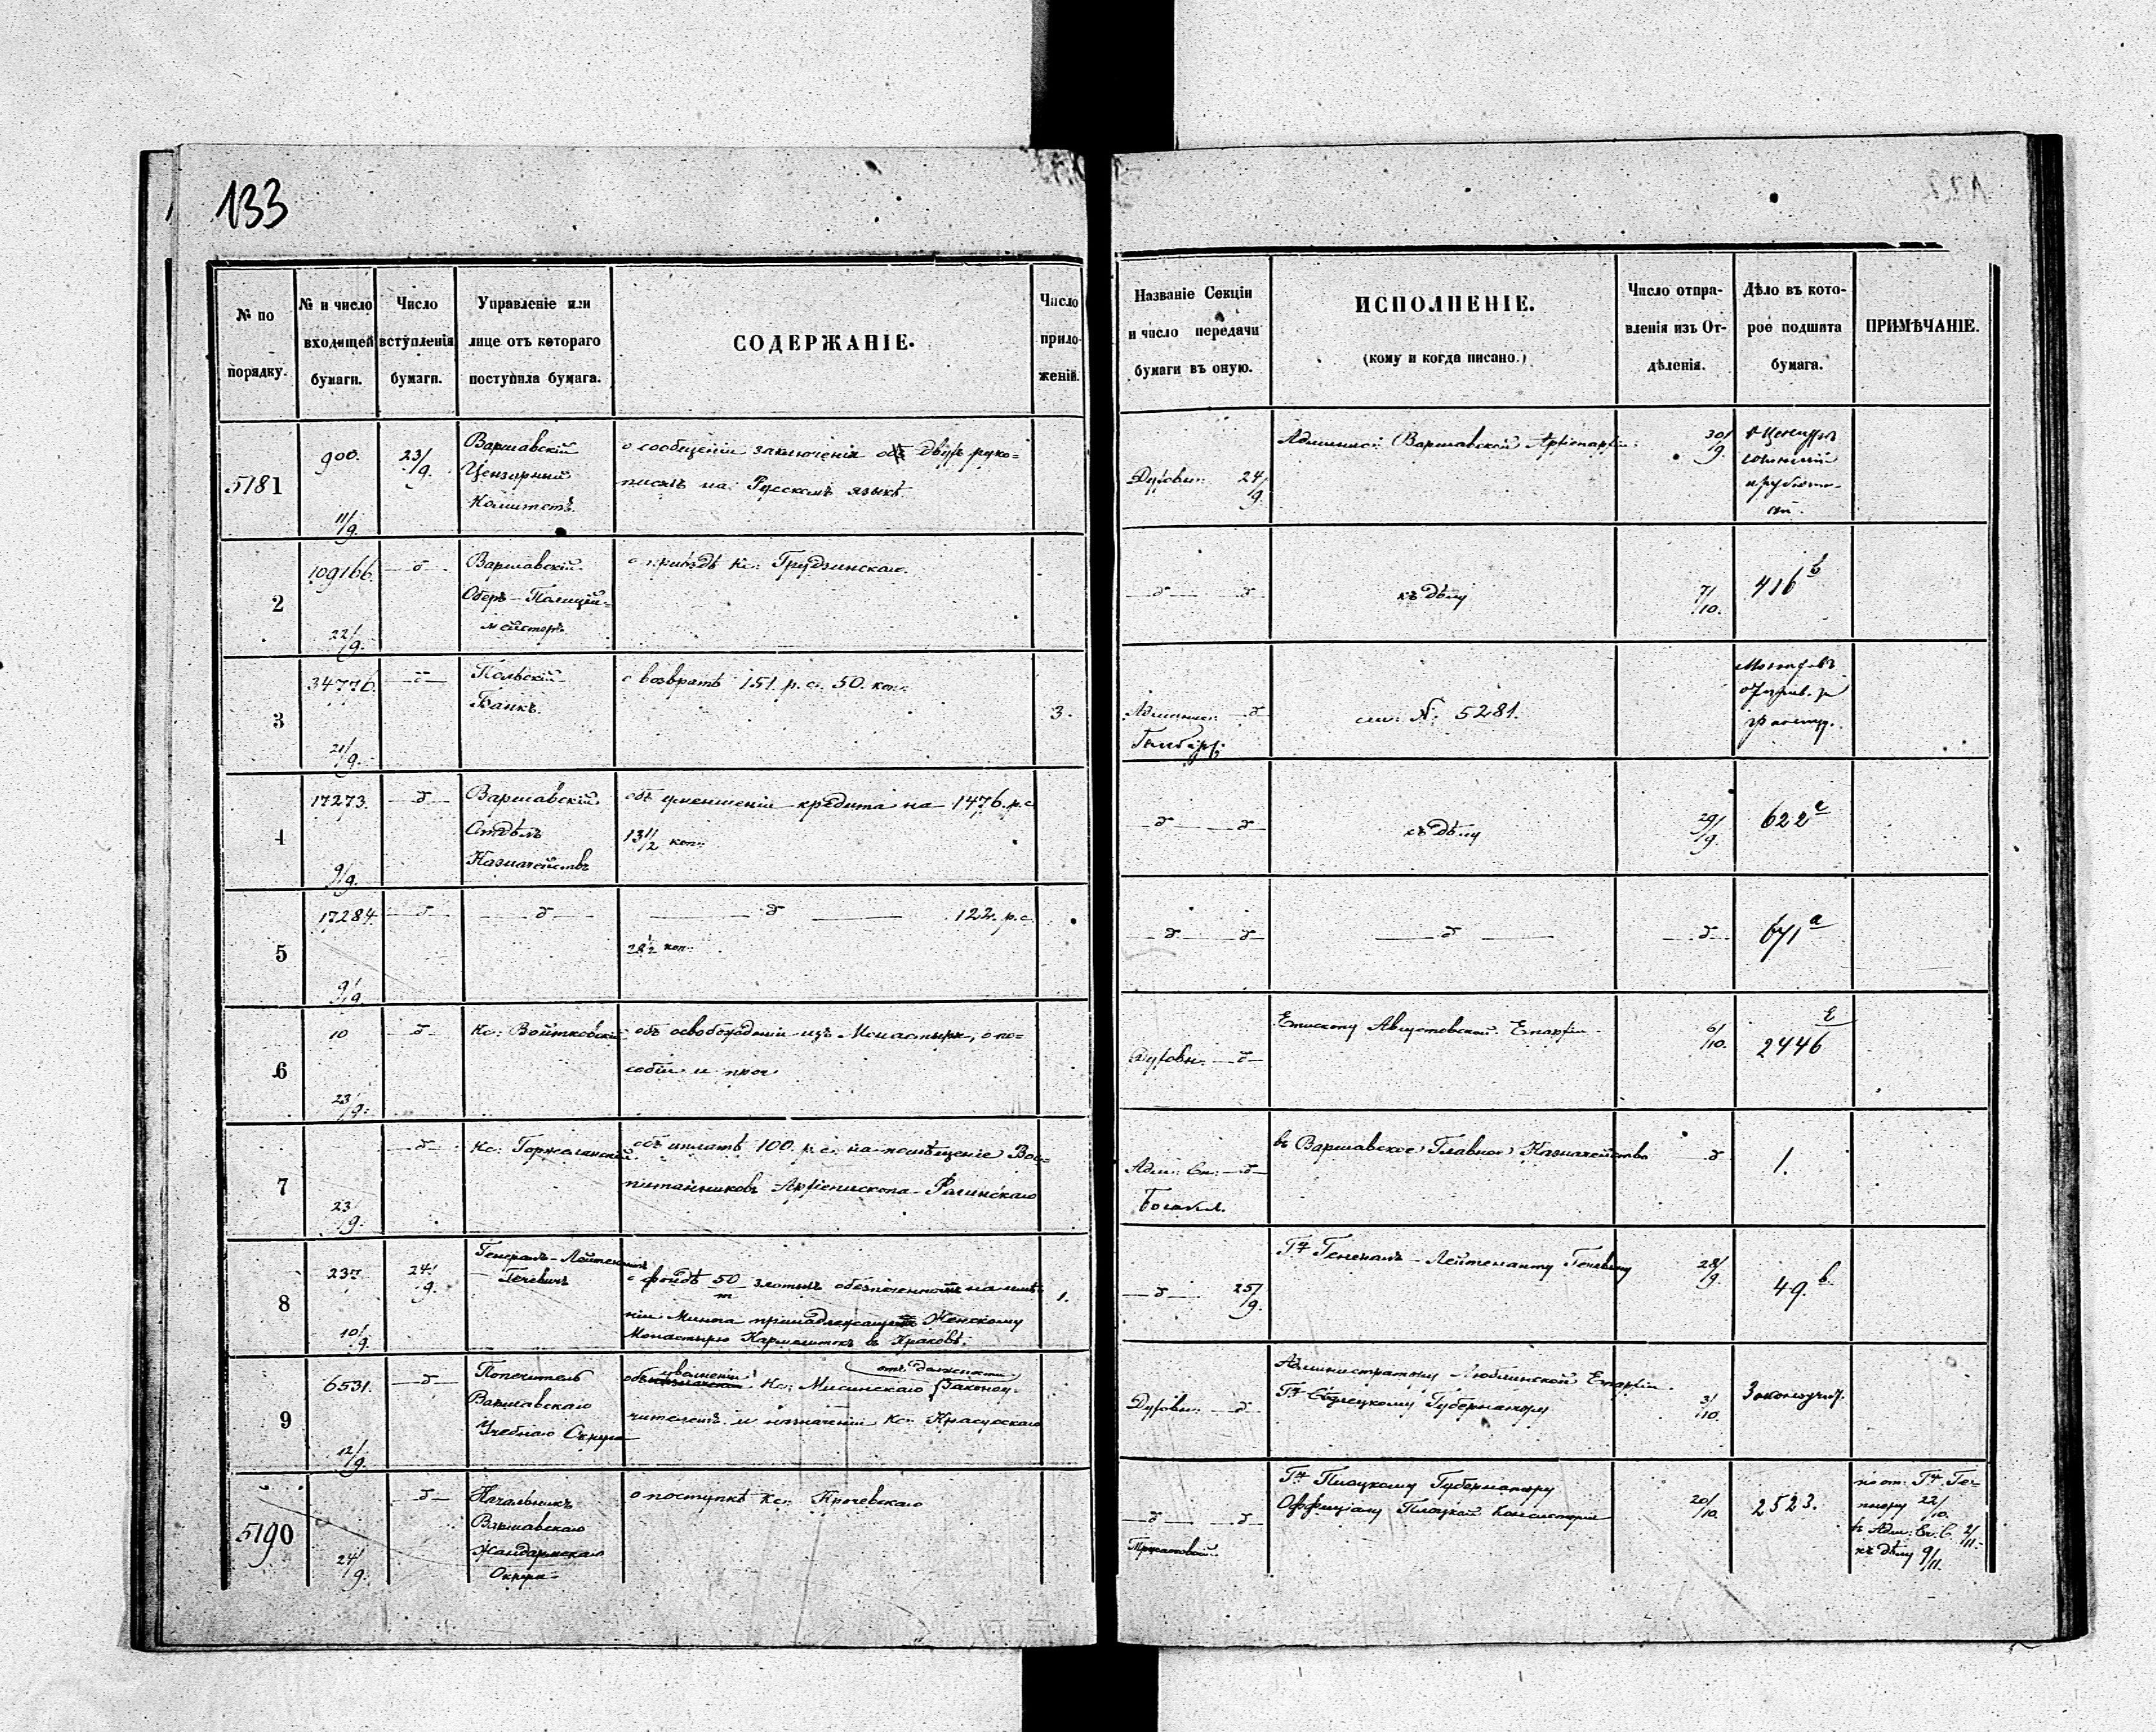 133
№ по порядку.
№ и число входящей бумаги.
Число вступленія бумаги.
Управленіе или лице отъ котораго поступила бумага.
СОДЕРЖАНІЕ.
Число прило-женій.
Названіе Секціи и число передачи бумаги въ оную.
ИСПОЛНЕНІЕ.
(кому и когда писано.)
Число отпра-вленія изъ От-дѣленія.
Дѣло въ кото-рое подшита бумага.
ПРИМѢЧАНІЕ.
5181
900.
11/9.
23/9.
Варшавскій
Цензурный
Комитетъ.
о сообщеніи заключенія объ двухъ руко=
писяхъ на Русскомъ языкѣ.
Духовн: 24/9.
Админис: Варшавской Архіепархіи.
30/9.
2
109166.
22/9.
—д—
Варшавскій
Оберъ-Полицій=
мейстеръ
о приѣздѣ Кс: Грудзинскаго.
—д— д—
къ дѣлу
7/10.
416 b
3
34776.
21/9.
—д—
Польскій
Банкъ.
о возвратѣ 151. р. с. 50. коп:
3.
—д
см: №: 5281.
4
17273.
9/9.
—д—
Варшавскій
Отдѣлъ
Казначействъ
объ уменьшеніи кредита на 1476. р. с
13 1/2 коп:
—д— —д—
къ дѣлу
29/9.
622
5
17284
9/9.
—д—
—д—
—д— 122. р. с.
28 1/2 коп:
—д— д—
—д—
—д—
671 a
6
10
23/9.
—д—
Кс: Войтковскій
объ освобожденіи изъ Монастыря, о по=
собіи и проч
Духовн: —д—
Епископу Августовской Епархіи.
6/10.
2446
7
23/9.
—д—
Кс:
объ уплатѣ 100. р. с. на помѣщеніе Вос=
питанниковъ Архіепископа
Адм: Ск: —д—
въ Варшавское Главное Казначейство
д
1.
8
237
10/9.
24/9.
Генералъ-Лейтенантъ
Гечевичъ
о фондѣ 50/m злотыхъ обезпеченномъ на имѣ=
ніи принадлежащемъ Женскому
Монастырю Кармелитокъ въ Краковѣ.
1.
—д— 25/9.
Гну Генералъ-Лейтенанту Гечевичу
28/9.
49. b
9
6531.
12/9.
—д—
Попечитель
Варшавскаго
Учебнаго Округа
объ увольненіи Кс: Мисинскаго отъ должности Законоу-
чителемъ и назначеніи Кс: Красусскаго
Духовн: —д
Администратору Люблинской Епархіи.
Гну Сѣдлецкому Губернатору
3/10.
Законоучит.
5190
24/9.
—д—
Начальникъ
Варшавскаго
Жандармскаго
Округа.
о поступкѣ Кс:
—д— д—
Гну Плоцкому Губернатору
Оффиціалу Плоцкой Консисторіи
20/10.
2523.
22/10.
2/11.
къ дѣлу 9/11.